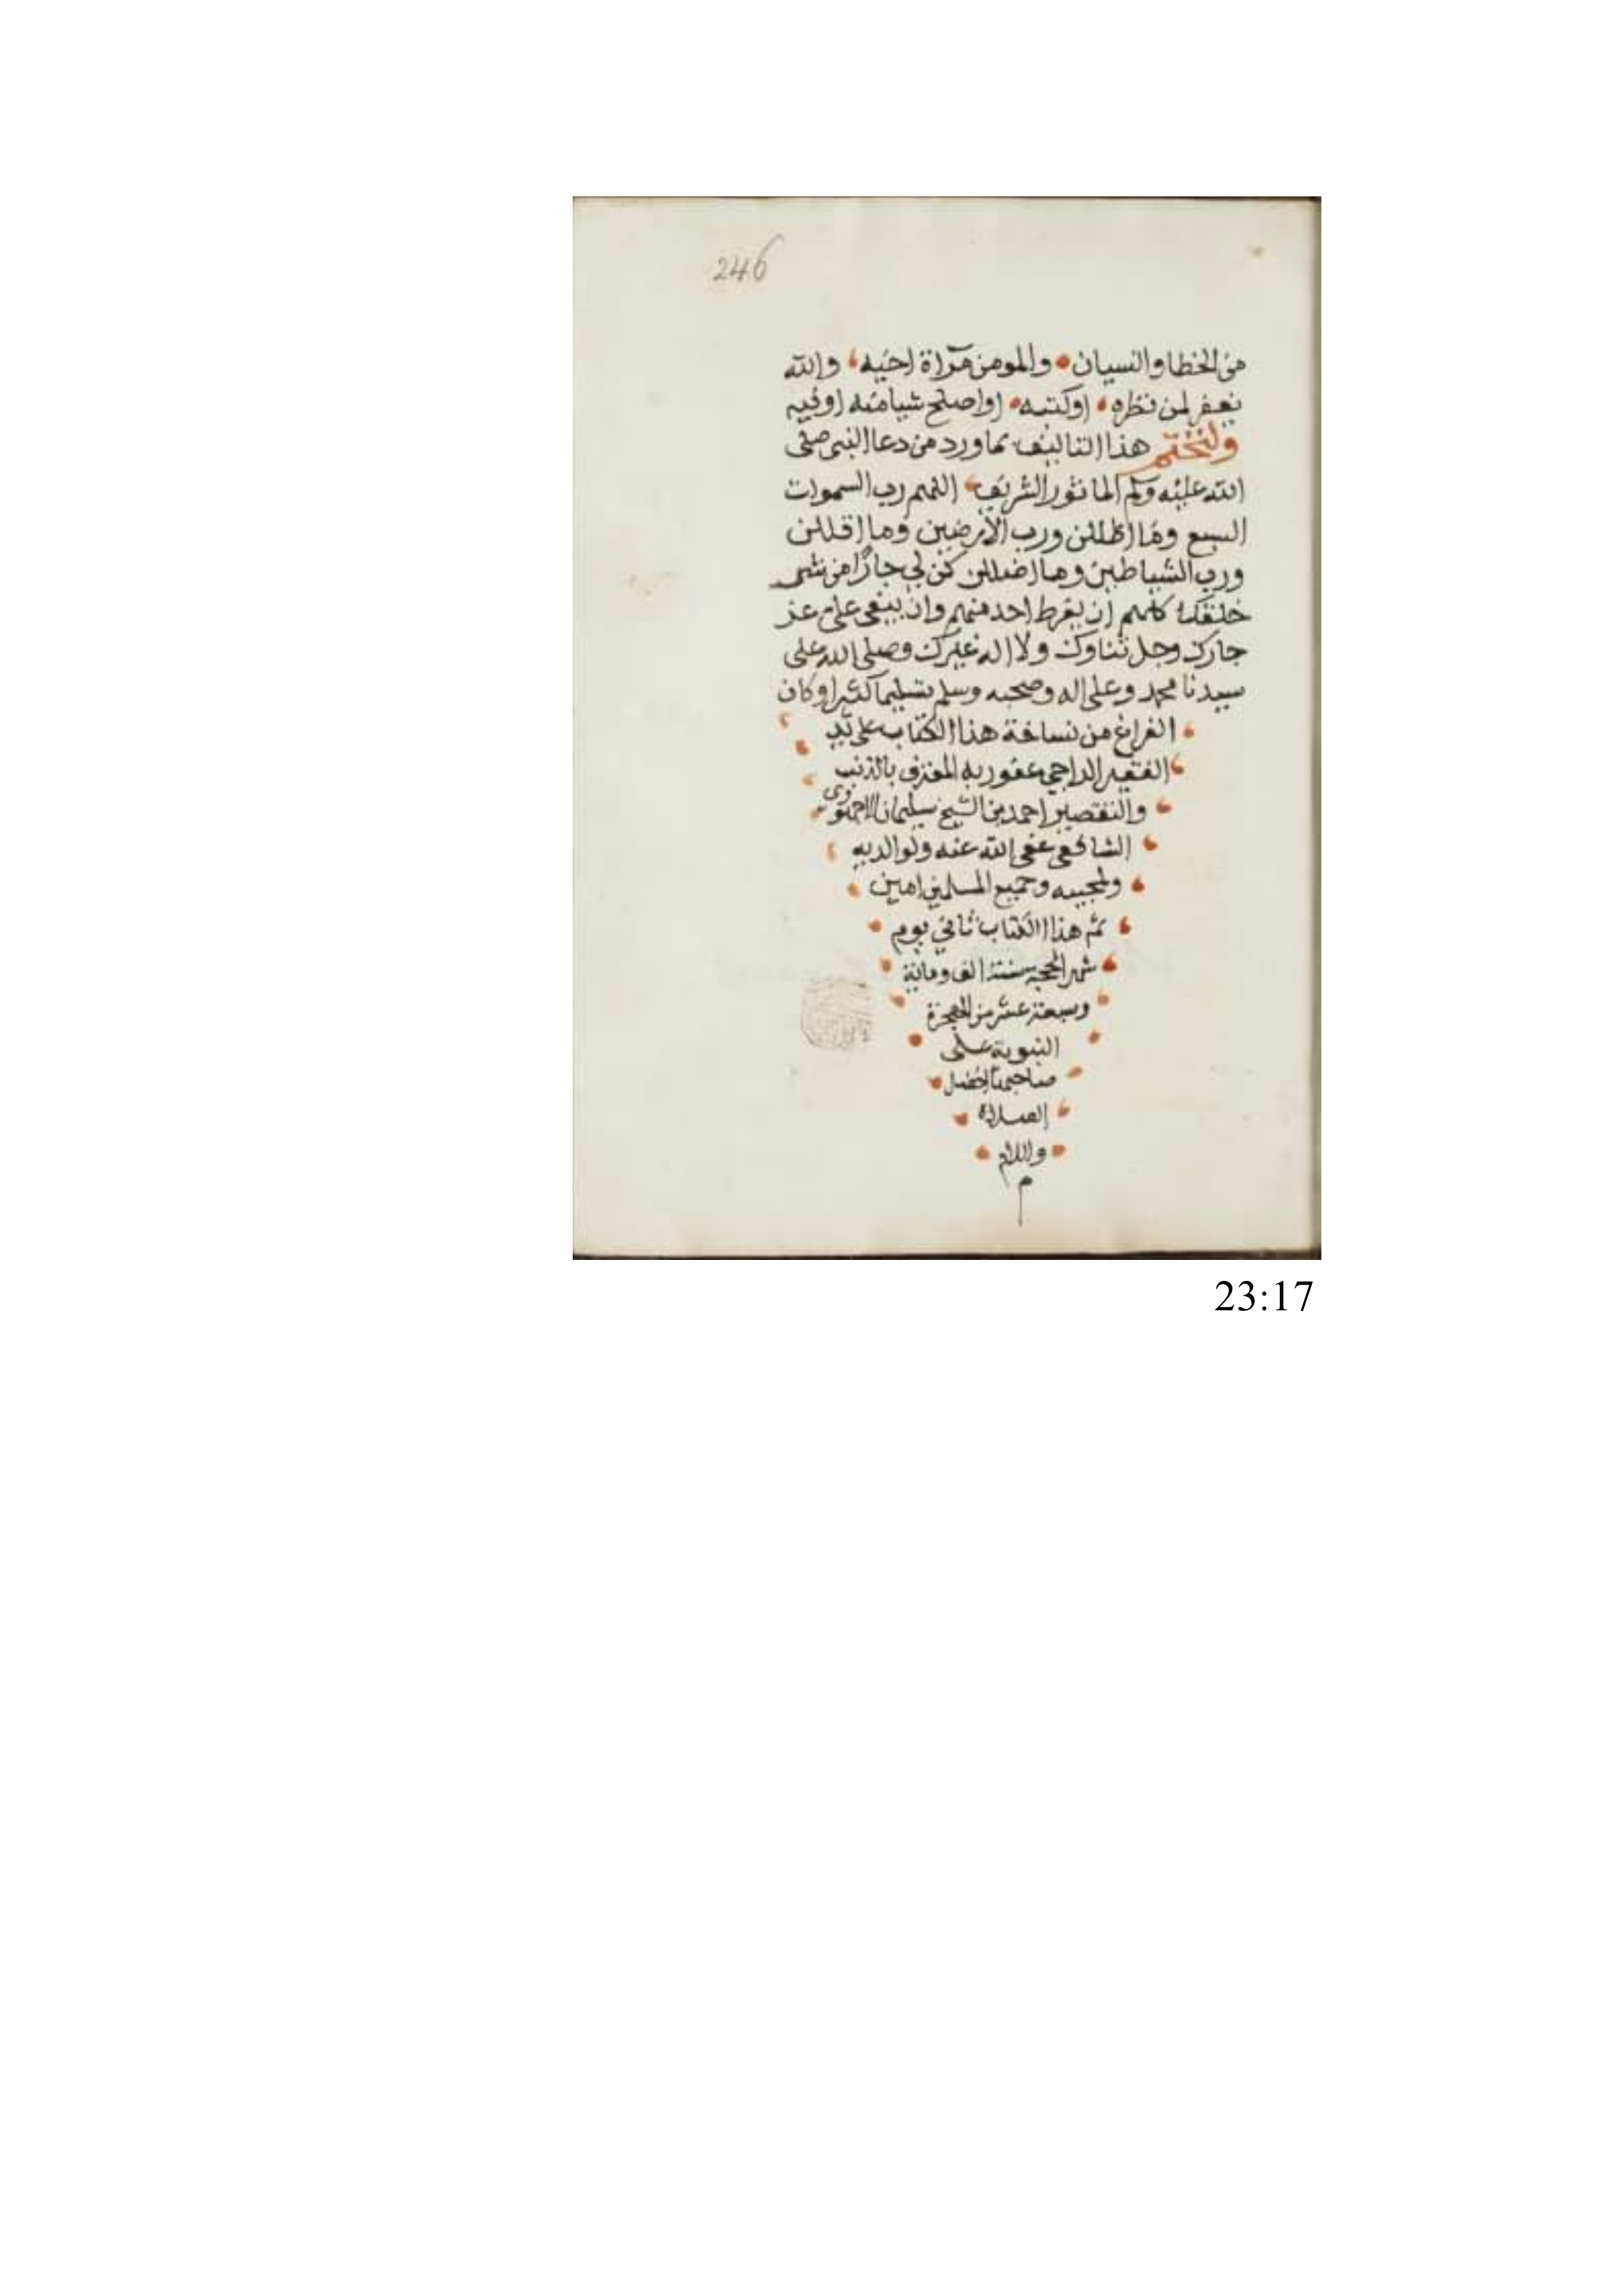 246
من الخطا والنسيان والمومن مرآة اخيه والله
يغفر لمن نظره اوكتبه اواصلح شيامنه اوفيه
ولنختم هذا التاليف بماورد من دعا النبي صلى
الله عليه وسلم الماثور الشريف اللهم رب السموات
السبع وما اظللن ورب الارضين وما اقللن
ورب الشياطين وما اضللن كن لي جارًا من شر
خلقك كلهم ان يفرط احد منهم وان يبغى على عز
جارك وجل ثناوك ولا اله غيرك وصلى الله على
سيدنا محمد وعلى اله وصحبه وسلم تسليما كثيرا وكان
الفراغ من نساخة هذا الكتاب على يد
الفقير الراجي عفو ربه المعترف بالذنب
والتقصير احمد بن الشيخ سليمان
الشافعي عفى الله عنه ولوالديه
ولمحبيه وجميع المسلمين امين
تم هذا الكتاب ثاني يوم
شهر الحجه سنة الف وماية
وسبعة عشر من الهجرة
النبوية على
صاحبها افضل
الصلاة
والسلام
م
23:17